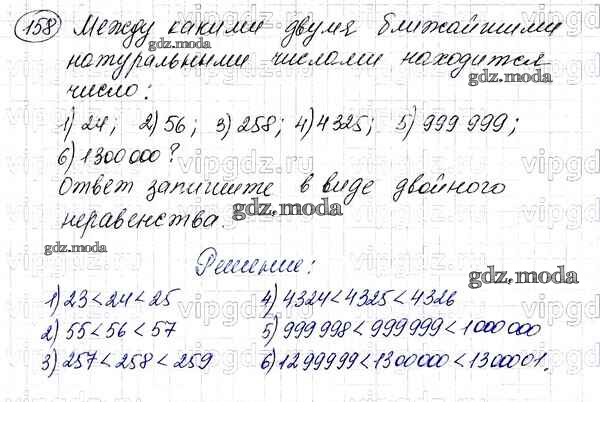 158 Между какими двумя ближайшими
gdz.moda
натуральными числами находится
gdz.moda
число:
1) 24; 2) 56; 3) 258; 4) 4325; 5) 999 999;
6) 1300 000?
vipgdz.ru
Ответ запишите в виде двойного
gdz.moda
неравенства.
gdz.moda
Решение:
gdz.moda
1) 23 < 24 < 25
4) 4324 < 4325 < 4326
2) 55 < 56 < 57
5) 999 998 < 999 999 < 1000 000
3) 257 < 258 < 259
6) 1299999 < 1300000 < 1300001.